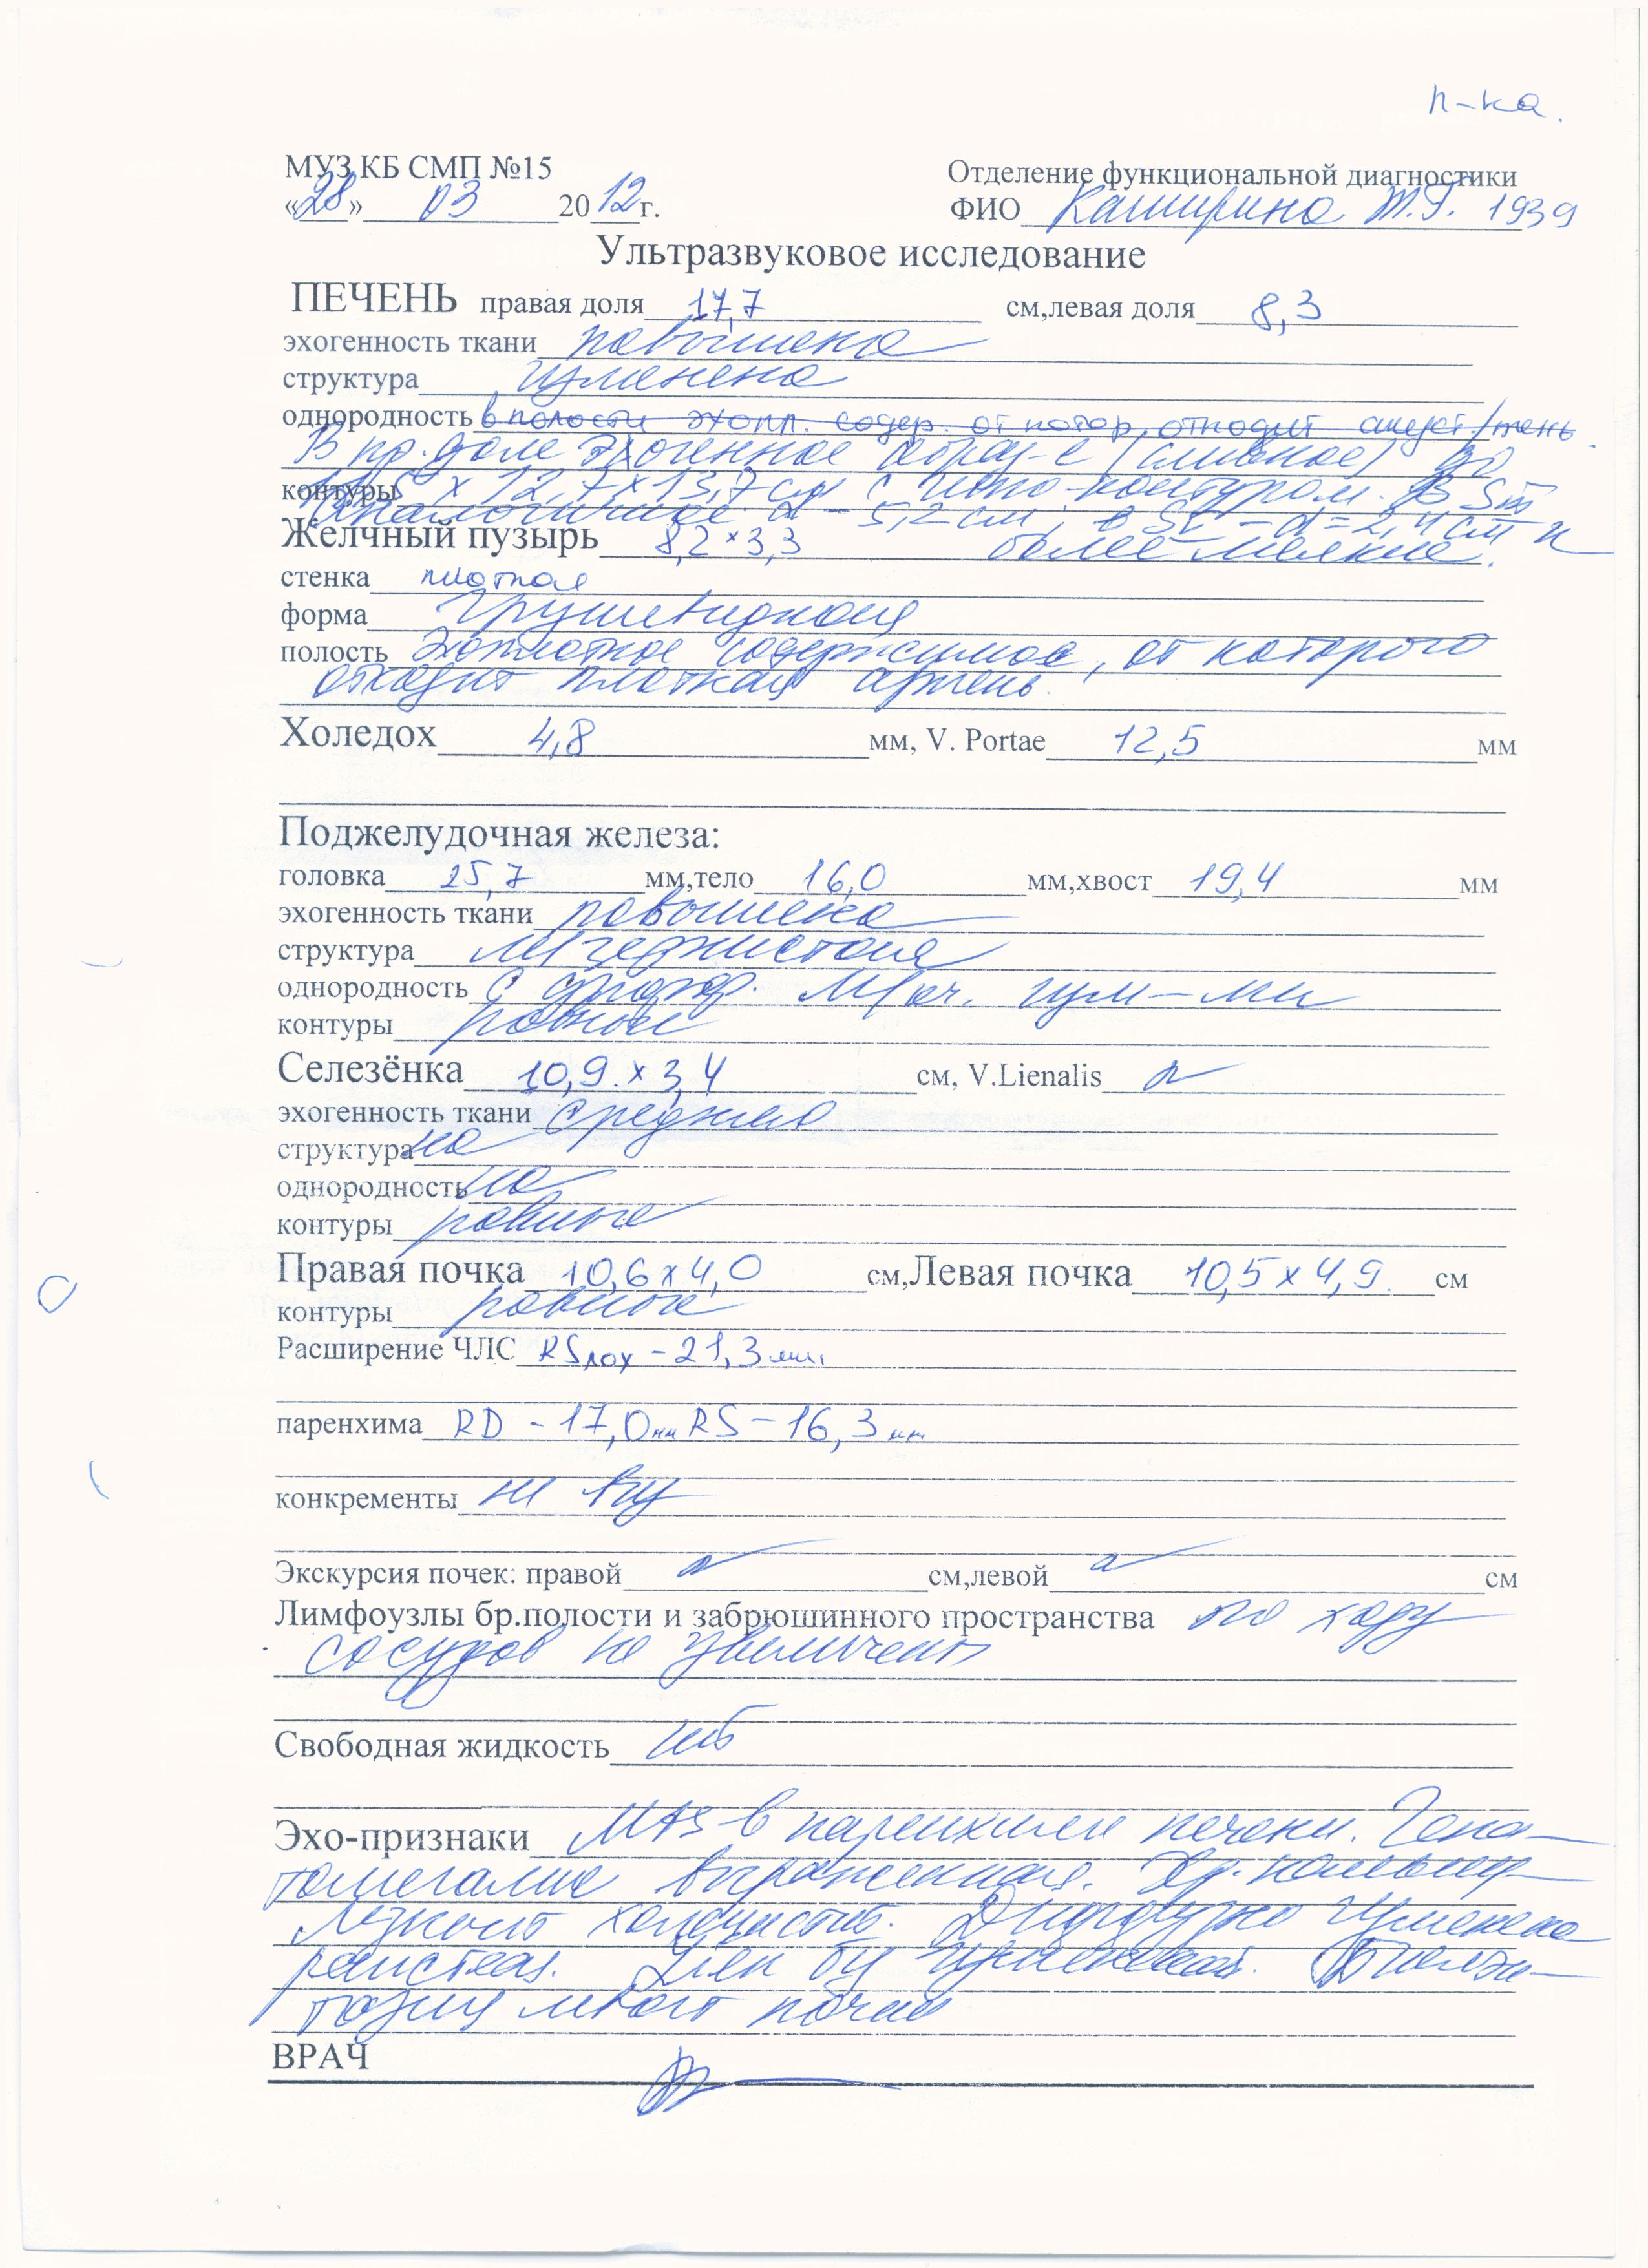 п-ка.
МУЗ КБ СМП №15 Отделение функциональной диагностики
«28» 03 2012г. ФИО Каширина Т.Г. 1939
Ультразвуковое исследование
ПЕЧЕНЬ правая доля 17,7 см,левая доля 8,3
эхогенность ткани повышена
структура изменена
однородность в полости эхопл. содер. от котор. отходит акуст/тень.
В пр. доле эхогенное образ-е (сливное) до
контуры х 12,7х13,7см с гипо-контуром. В
Аналогичное d - 5,2см, в - d=2,4см и
Желчный пузырь 8,2×3,3 более мелкие.
стенка плотная
форма грушевидная
полость Эхоплотное содержимое, от которого
отходит плотная артень.
Холедох 4,8 мм, V. Portae 12,5 мм
Поджелудочная железа:
головка 25,7 мм,тело 16,0 мм,хвост 19,4 мм
эхогенность ткани повышена
структура мгзернистая
однородность с изм-ми
контуры ровные
Селезёнка 10,9 х 3,4 см, V.Lienalis
эхогенность ткани средняя
структура
однородность
контуры ровные
Правая почка 10,6х4,0 см,Левая почка 10,5х4,9 см
контуры ровные
Расширение ЧЛС RSлох - 21,3мм
паренхима RD - 17,0мм RS - 16,3мм
конкременты не виз
Экскурсия почек: правой см,левой см
Лимфоузлы бр.полости и забрюшинного пространства по ходу
сосудов не увеличены
Свободная жидкость нет
Эхо-признаки MTS в паренхиме печени. Гепа-
томегалия выраженная. Хр. калькул-
лезного холецистит. Диффузно изменена
панкреас. изменена. Пиелоэк-
тазия левой почки
ВРАЧ